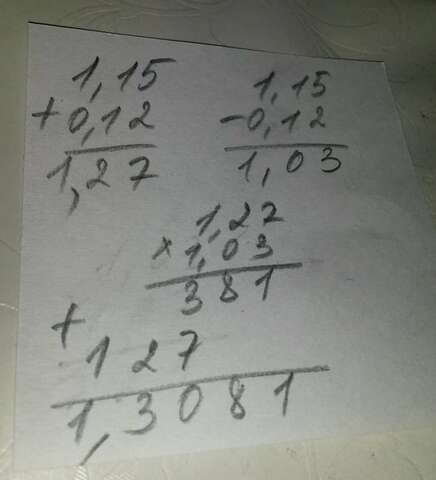 1,15
+0,12
1,27
1,15
-0,12
1,03
1,27
×1,03
381
+
127
1,3081